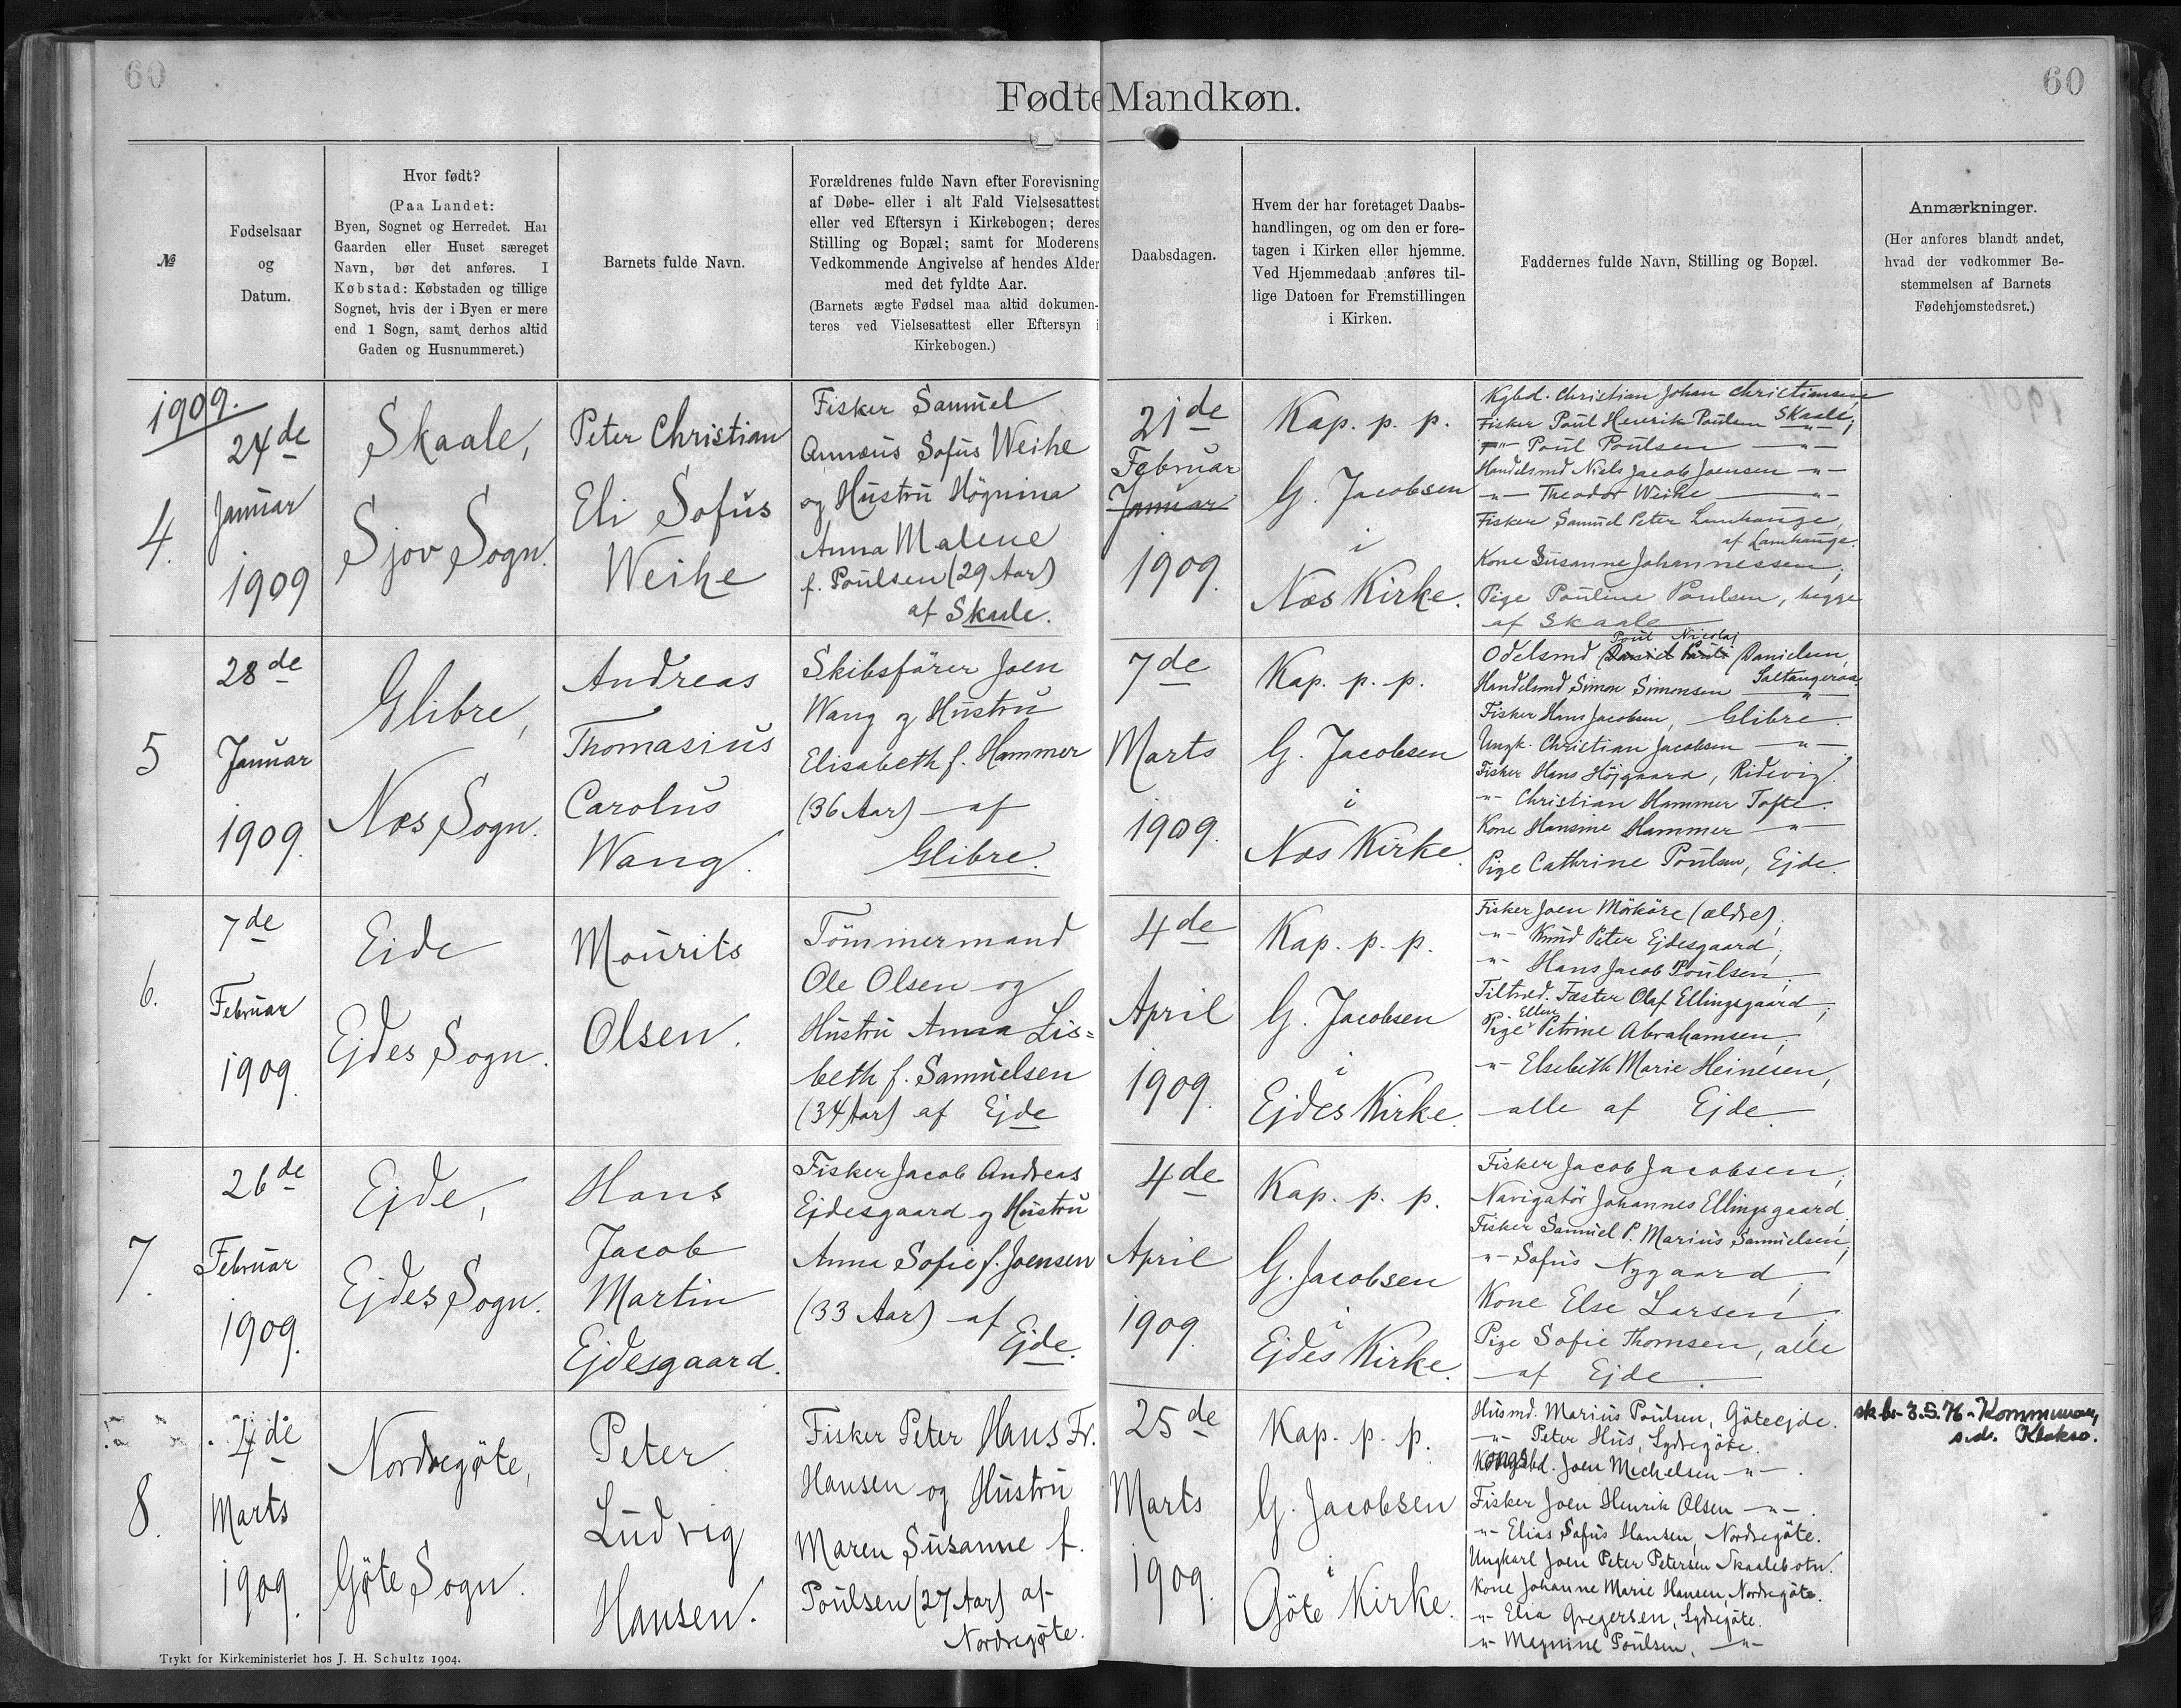 60
60
Fødte Mandkøn.
№
Fødselsaar
og
Datum.
Hvor født?
(Paa Landet:
Byen, Sognet og Herredet. Har
Gaarden eller Huset særeget
Navn, bør det anføres. I
Købstad: Købstaden og tillige
Sognet, hvis der i Byen er mere
end 1 Sogn, samt derhos altid
Gaden og Husnummeret.)
Barnets fulde Navn.
Forældrenes fulde Navn efter Forevisning
af Døbe- eller i alt Fald Vielsesattest
eller ved Eftersyn i Kirkebogen; deres
Stilling og Bopæl; samt for Moderens
Vedkommende Angivelse af hendes Alder
med det fyldte Aar.
(Barnets ægte Fødsel maa altid dokumen-
teres ved Vielsesattest eller Eftersyn i
Kirkebogen.)
Daabsdagen.
Hvem der har foretaget Daabs-
handlingen, og om den er fore-
tagen i Kirken eller hjemme.
Ved Hjemmedaab anføres til-
lige Datoen for Fremstillingen
i Kirken.
Faddernes fulde Navn, Stilling og Bopæl.
Anmærkninger.
(Her anføres blandt andet,
hvad der vedkommer Be-
stemmelsen af Barnets
Fødehjemstedsret.)
1909.
4.
24de
Januar
1909
Skaale,
Sjov Sogn.
Peter Christian
Eli Sofus
Weihe
Fisker Samuel
Sofus Weihe
og Hustru Högnina
Anna Malene
f. Poulsen (29 Aar)
af Skaale.
21de
Februar
Januar
1909.
Kap. p. p.
G. Jacobsen
i
Nes Kirke.
Kgbd. Christian Johan Christiansen,
Fisker Poul Henrik Poulsen Skaale,
-"- Poul Poulsen -"-
Handelsmd Niels Jacob Joensen -"-
-"- Theodor Weihe -"-
Fisker Samuel Peter Lamhauge,
af Lamhauge.
Kone Susanne Johannessen,
Pige Pouline Poulsen, begge
af Skaale
5
28de
Januar
1909.
Glibre,
Nes Sogn.
Andreas
Thomasius
Carolus
Wang.
Skibsförer Joen
Wang og Hustru
Elisabeth f. Hammer
(36 Aar) af
Glibre.
7de
Marts
1909.
Kap. p. p.
G. Jacobsen
i
Nes Kirke.
Poul Nicolaj
Odelsmd Danielsen,
Saltangeraa
Handelsmd Simon Simonsen -"-
Fisker Hans Jacobsen, Glibre.
Ungk. Christian Jacobsen -"-
Fisker Hans Höjgaard, Ridevig.
-"- Christian Hammer Tofte.
Kone Hansine Hammer -"-
Pige Cathrine Poulsen, Ejde.
6.
7de
Februar
1909.
Eide
Ejdes Sogn.
Mourits
Olsen.
Tömmermand
Ole Olsen og
Hustru Anna Lis=
beth f. Samuelsen
(34 Aar) af Ejde
4de
April
1909.
Kap. p. p.
G. Jacobsen
i
Ejdes Kirke.
Fisker Joen Mörköre (ældre),
-"- Knud Peter Ejdesgaard,
-"- Hans Jacob Poulsen,
Fæster Olaf Ellingsgaard,
Ellen
Pige Petrine Abrahamsen,
-"- Elsebeth Marie Heinesen,
alle af Ejde.
7.
26de
Februar
1909.
Ejde,
Ejdes Sogn.
Hans
Jacob
Martin
Ejdesgaard.
Fisker Jacob Andreas
Ejdesgaard og Hustru
Anna Sofie f. Joensen
(33 Aar) af
Ejde.
4de
April
1909.
Kap. p. p.
G. Jacobsen
i
Ejdes Kirke.
Fisker Jacob Jacobsen,
Navigatör Johannes Ellingsgaard,
Fisker Samuel P. Marius Samuelsen,
-"- Sofus Nygaard,
Kone Else Larsen,
Pige Sofie Thomsen, alle
af Ejde.
8.
4de
Marts
1909.
Nordregöte,
Göte Sogn.
Peter
Ludvig
Hansen.
Fisker Peter Hans Fr.
Hansen og Hustru
Maren Susanne f.
Poulsen (27 Aar) af
Nordregöte.
25de
Marts
1909.
Kap. p. p.
G. Jacobsen
i
Göte Kirke.
Husmd. Marius Poulsen, Göteejde.
-"- Peter Hus, Sydregöte.
Kongsbd. Joen Michelsen -"-
Fisker Joen Henrik Olsen -"-
-"- Elias Sofus Hansen, Nordregöte.
Ungkarl Joen Peter Petersen Skaalebotn.
Kone Johanne Marie Hansen, Nordregöte.
-"- Elia Gregersen, Sydregöte.
-"- Poulsen, -"-
sk.br. 3.5.76 - Kommunan,
s.d. Klaksv.
Trykt for Kirkeministeriet hos J. H. Schultz 1904.